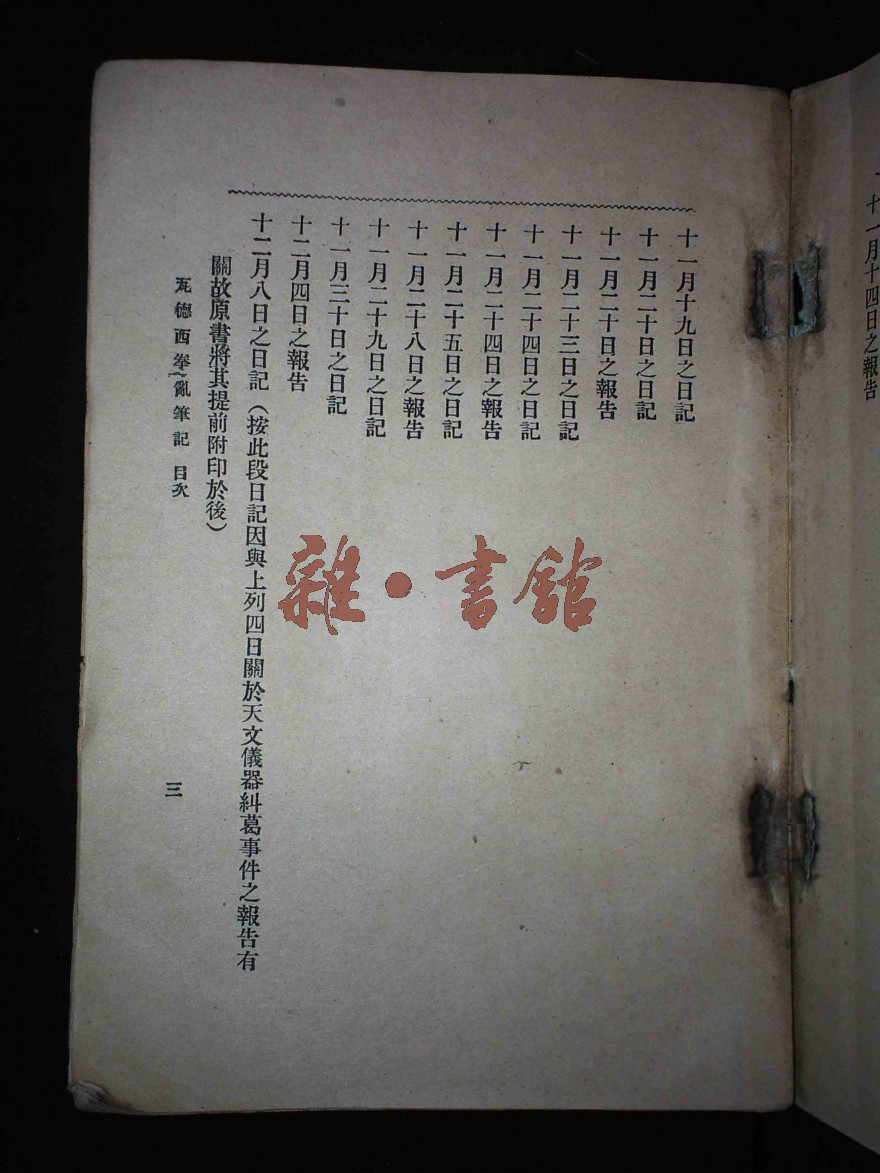 十一月十四日之報告
十一月十九日之日記
十一月二十日之日記
十一月二十日之報告
十一月二十三日之日記
十一月二十四日之日記
十一月二十四日之報告
十一月二十五日之日記
十一月二十八日之報告
十一月二十九日之日記
十一月三十日之日記
十二月四日之報告
十二月八日之日記（按此段日記因與上列四日關於天文儀器糾葛事件之報告有
關故原書將其提前附印於後）
瓦德西拳亂筆記 目次
三
雜·書館